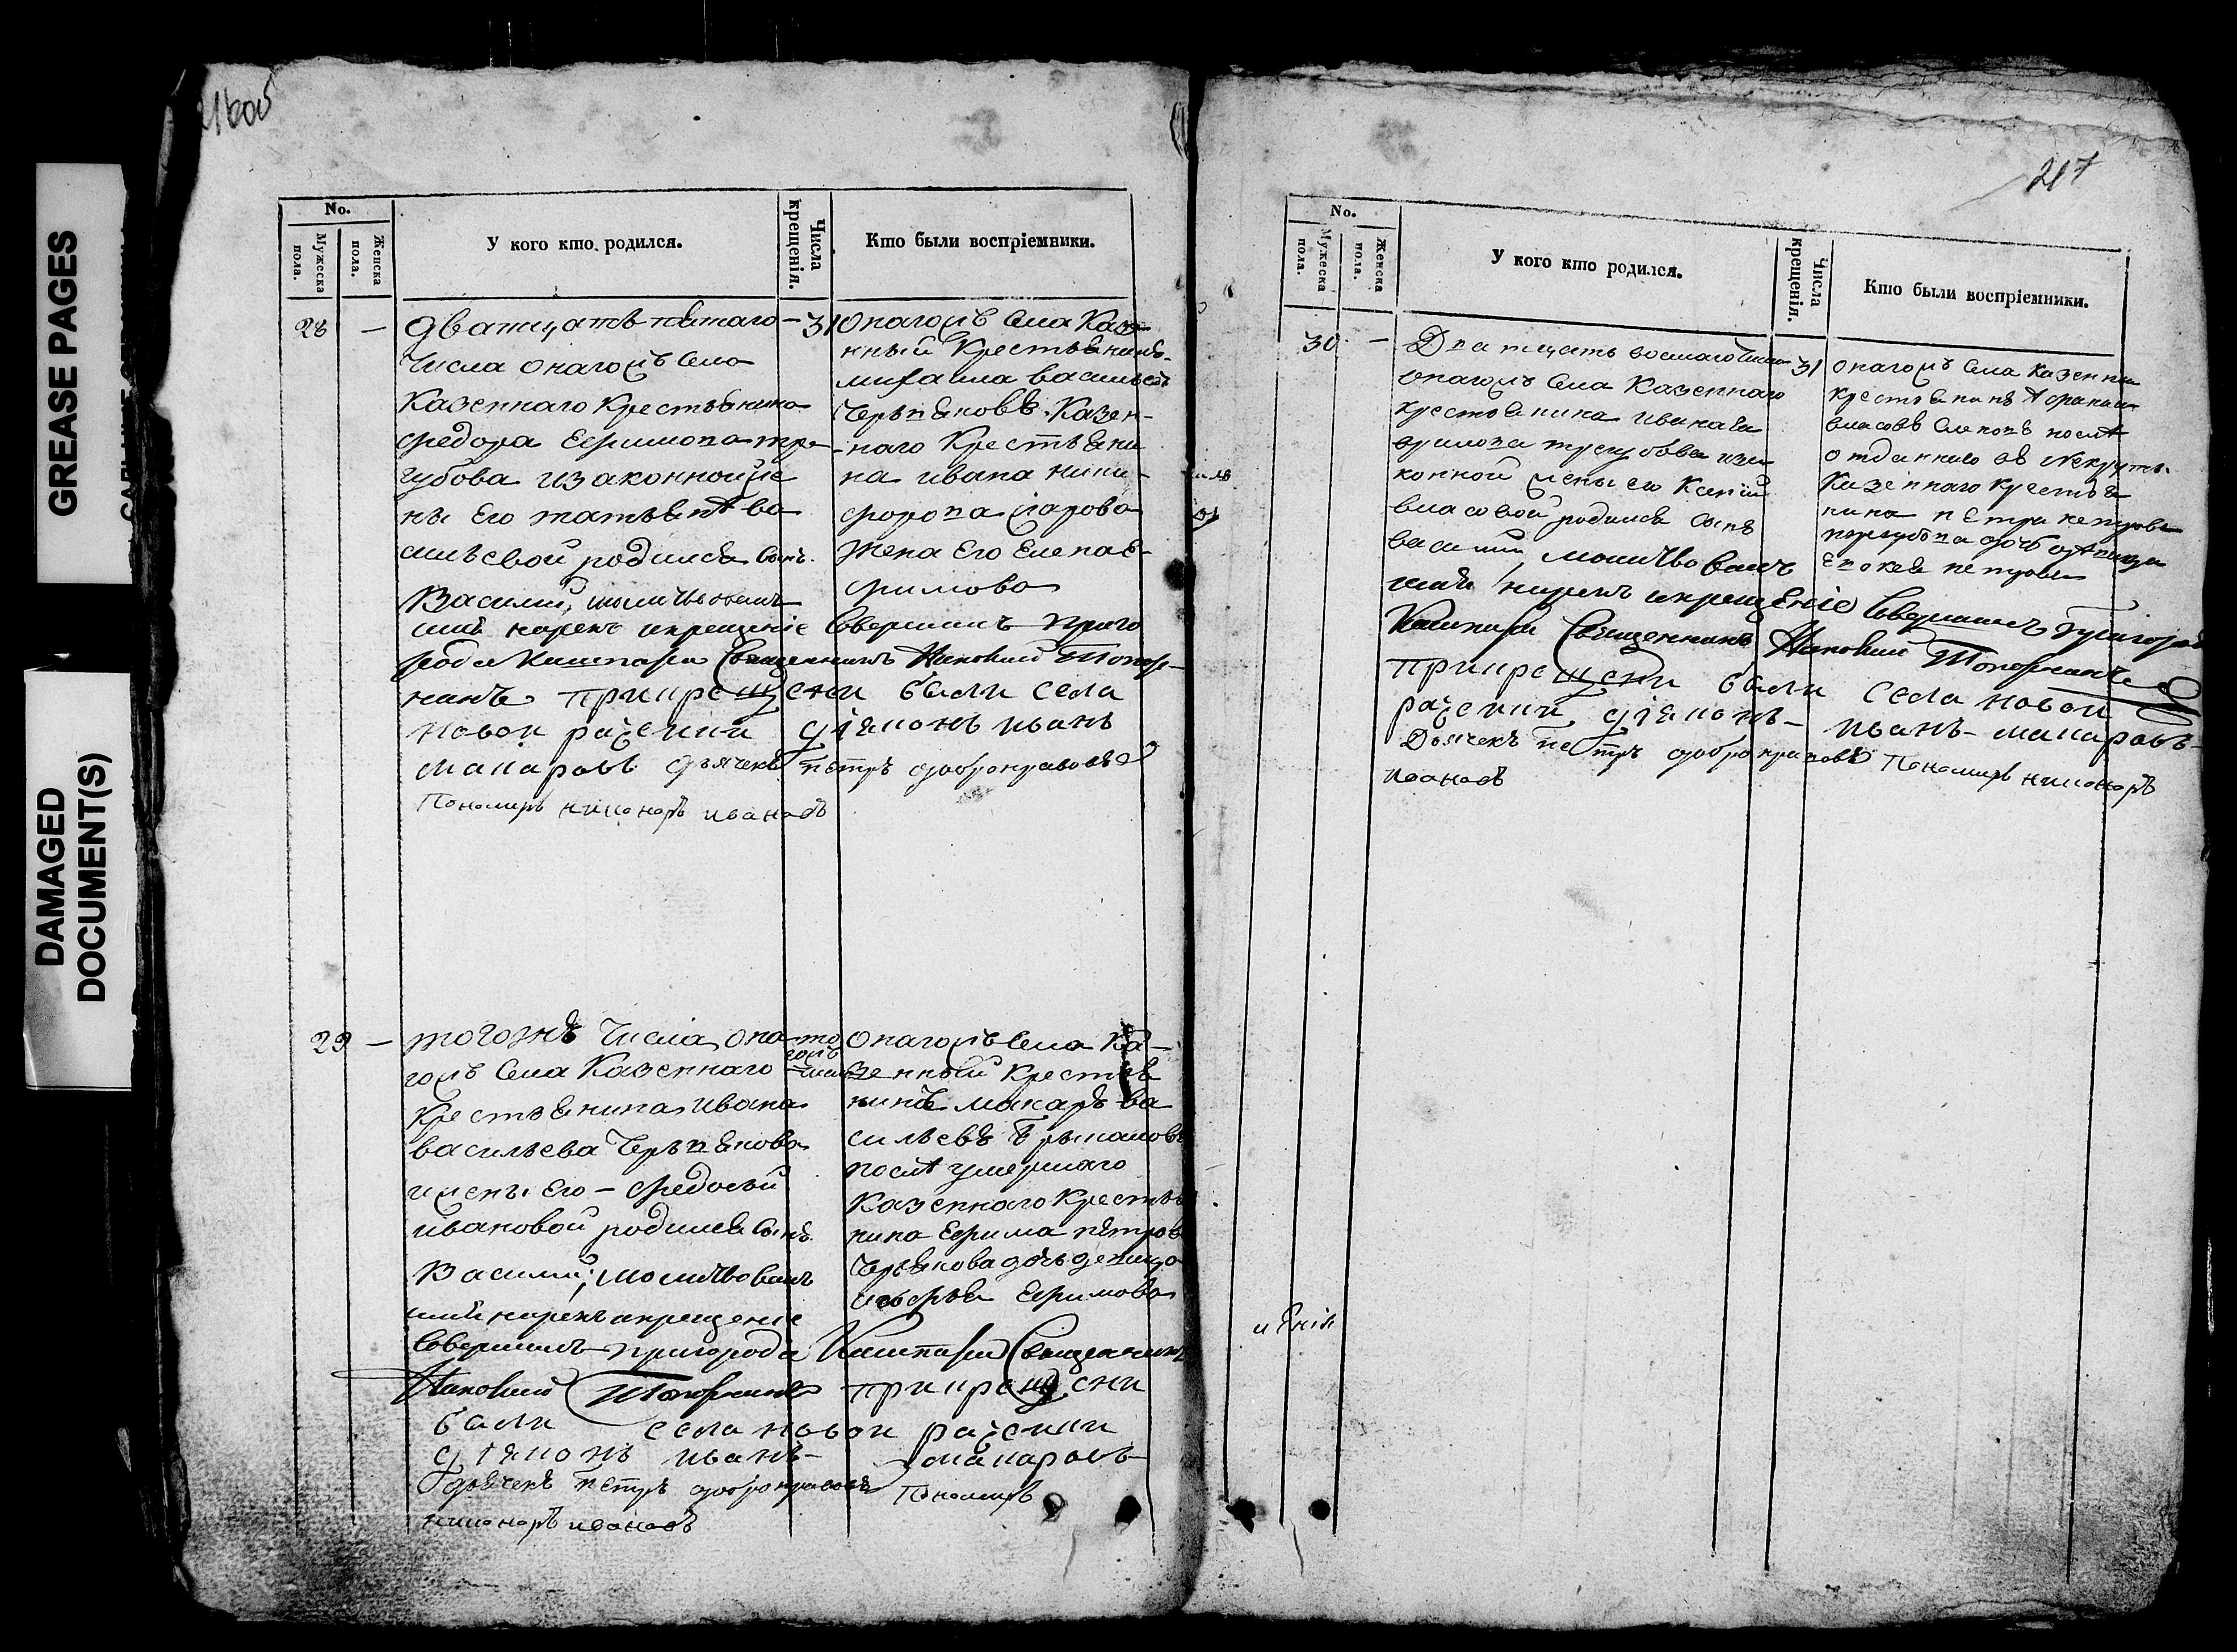 GREASE PAGES
DAMAGED
DOCUMENT(S)
216об
No.
Мужеска пола.
Женска пола.
У кого кто родился.
Числа крещенія.
Кто были воспріемники.
28 —
Дватцать пятаго —
числа онагожъ села
Казеннаго Крестьянина
Федора Ефимова тре-
губова изаконной же
ны Его татьяны ва
сильевой родился сынъ
Василий, молитвовалъ
имя нарекъ икрещеніе Совершилъ приго
рода Кашпира Священникъ Іаковъ Топор-
нинъ при крещении были села
новой рачейки дияконъ иванъ
макаровъ дьячекъ петръ добронравовъ
Пономарь никаноръ ивановъ
31
Онагожъ села Казе
нный Крестьянинъ
михаила васильевъ
Черьпяновъ. Казен-
наго Крестьяни
на ивана ники-
форова
жена Его Елена Е-
фимова
29 —
тогожъ Числа она
гожъ села Казеннаго
крестьянина ивана
васильева Черьпянова
ижены Его — Федосьи
ивановой родился сынъ
Василий; молитвовалъ
имя нарекъ икрещеніе
Совершилъ пригорода Кашпира Священникъ
Іаковъ Топорнинъ при крещении
были села новой рачейки
дияконъ иванъ — макаровъ
дьячекъ петръ добронравовъ Пономарь
никаноръ ивановъ
то
гожъ
числа
Онагожъ села Ка —
зенный Крестья
нинъ макаръ ва
сильевъ
послѣ умершаго
Казеннаго Крестья
нина Ефима петрова
дочь девица
Ефимова
217
No.
Мужеска пола.
Женска пола.
У кого кто родился.
Числа крещенія.
Кто были воспріемники.
30 —
Дватцать восмаго числа
онагожъ села Казеннаго
крестьянина ивана Е
фимова трегубова иза
конной жены его Ксении
власовой родился сынъ
василий молитвовалъ
имя нарекъ икрещеніе Совершилъ Пригорода
Кашпира Священникъ Іаковъ Топорнинъ
при крещении были села новой
рачейки дияконъ — иванъ — макаровъ —
Дьячекъ петръ добронравовъ Пономарь никаноръ
ивановъ
31
онагожъ села Казенны
крестьянинъ Афанаси
власовъ послѣ
отданнаго въ некруты
Казеннаго крестья
нина петра петрова
дочь девица
петрова